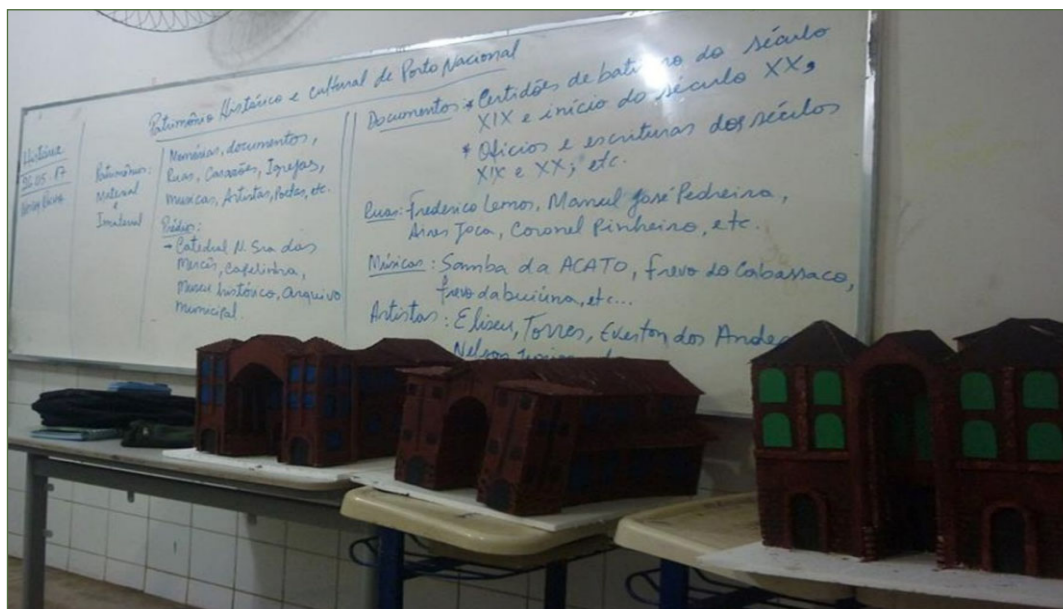 Patrimônio Histórico e cultural de Porto Nacional
História
26.05.17
Patrimônios:
Material
e
Imaterial
Memórias, documentos,
Ruas, Casarões, Igrejas,
Musicas, Artistas, Poetas, etc.
Prédios:
→ Catedral N. Sra das
Mercês, Capelinha,
Museu histórico, Arquivo
Municipal.
Documentos: * Certidões de batismo do século
XIX e início do século XX;
* Ofícios e escrituras dos séculos
XIX e XX; etc.
Ruas: Frederico Lemos, Manuel José Pedreira,
Aires Joca, Coronel Pinheiro, etc.
Músicas: Samba da ACATO, Frevo do Cabassaco,
frevo da buiúna, etc...
Artistas: Eliseu, Torres, Everton dos Andes
Nelson